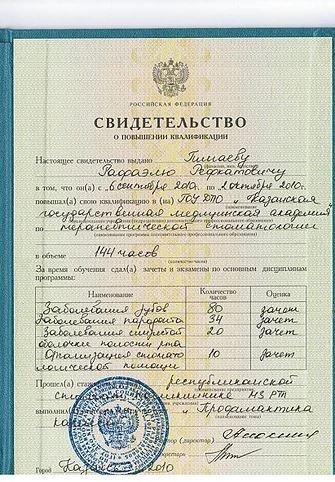 РОССИЙСКАЯ ФЕДЕРАЦИЯ
СВИДЕТЕЛЬСТВО
О ПОВЫШЕНИИ КВАЛИФИКАЦИИ
Настоящее свидетельство выдано Гимаеву
Рафаэлю Рифкатовичу
в том, что он(а) с „6 сентября 2010г. по 2 октября 2010г.
повышал(а) свою квалификацию в (на) ГОУ ДПО „Казанская
государственная медицинская академия"
по терапевтической стоматологии
в объеме 144 часов
За время обучения сдал(а) зачеты и экзамены по основным дисциплинам
программы:
Наименование Количество часов Оценка
Заболевания зубов 80 зачет
Заболевания пародонта 34 зачет
Заболевания слизистой оболочки полости рта 20 зачет
Организация стоматологической помощи 10 зачет
Прошел(а) стаж республиканской
поликлинике МЗ РТ
выполнил „Профилактика
Город Казань 2010